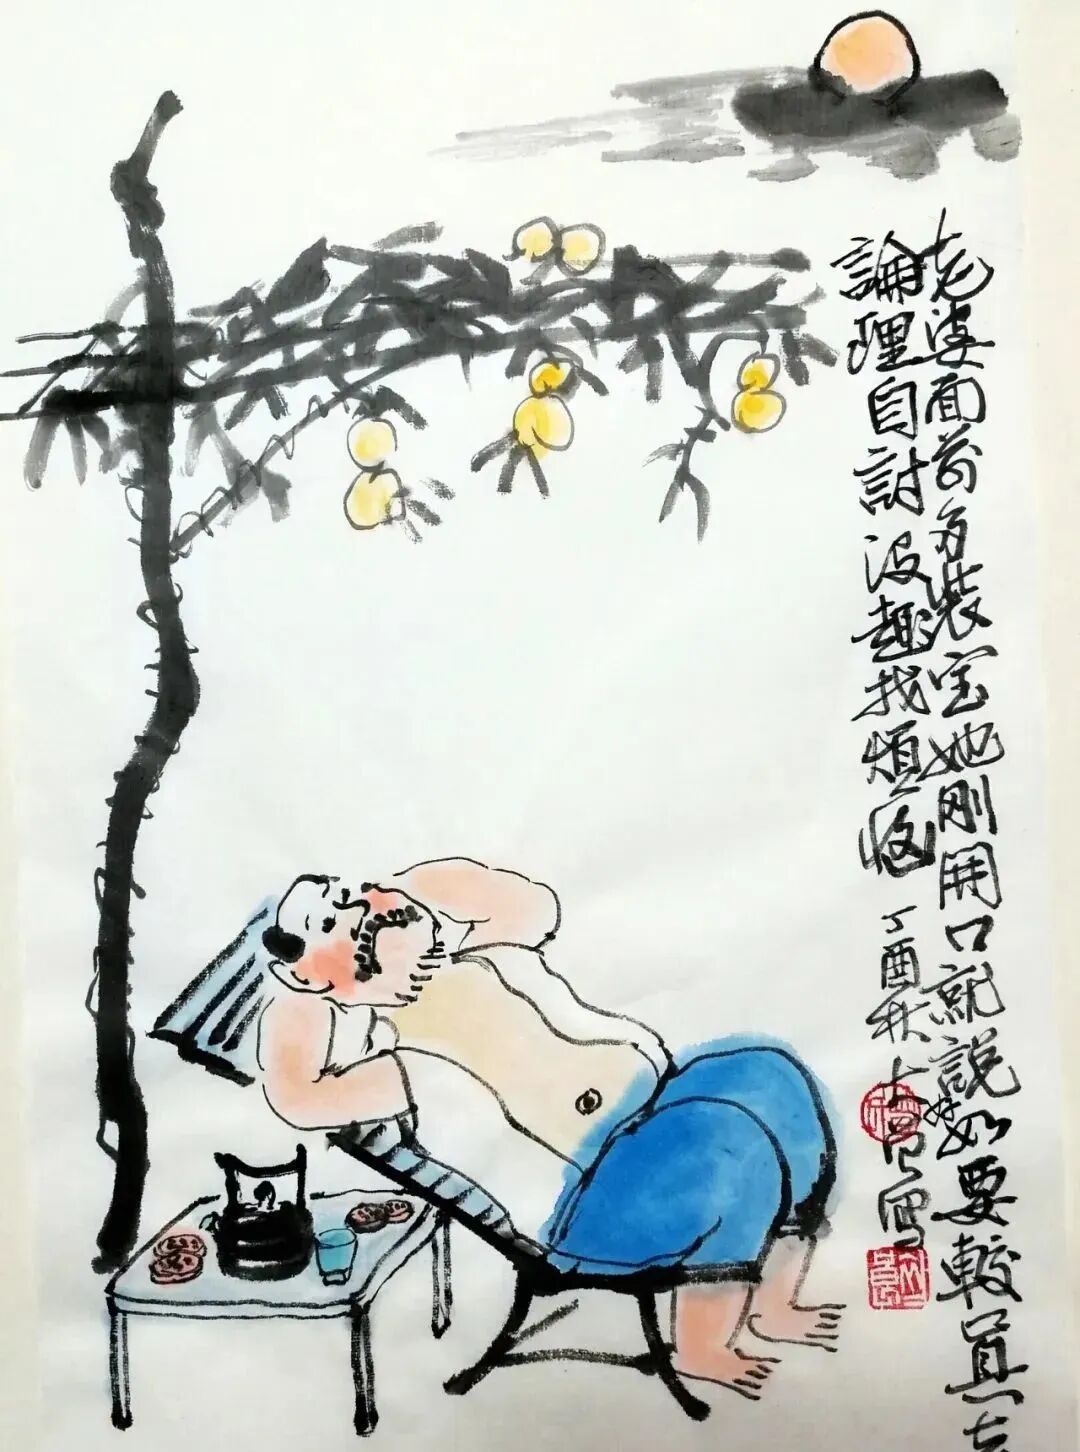 老婆面前多装宝她刚開口就説好如要較真去
論理自討没趣找煩惱
丁酉秋 寫